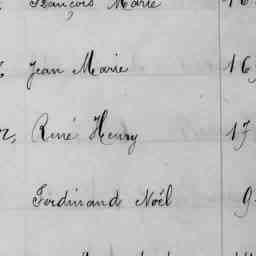 François Marie 16
Jean Marie 16
René Henry 17
Ferdinand Noël 9